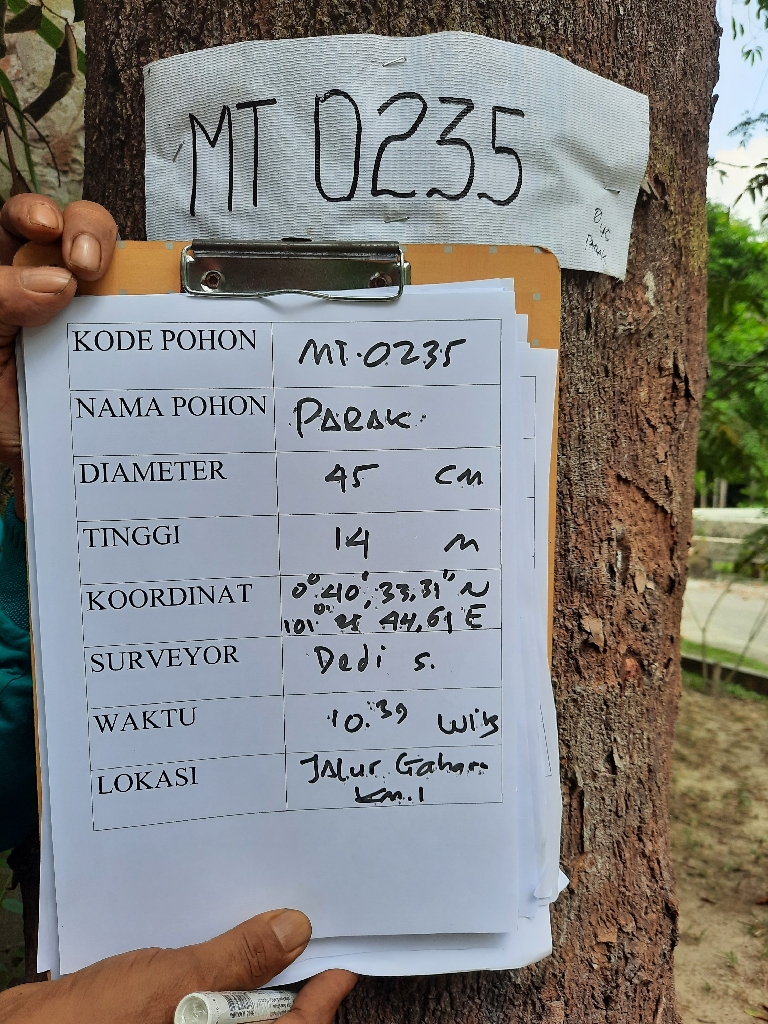 MT 0235
PARAK
KODE POHON MT.0235
NAMA POHON PARAK
DIAMETER 45 CM
TINGGI 14 M
KOORDINAT 0° 40' 33,31" N
101° 44,61 E
SURVEYOR Dedi S.
WAKTU 10.39 Wib
LOKASI JALur Gaharu
Km.1